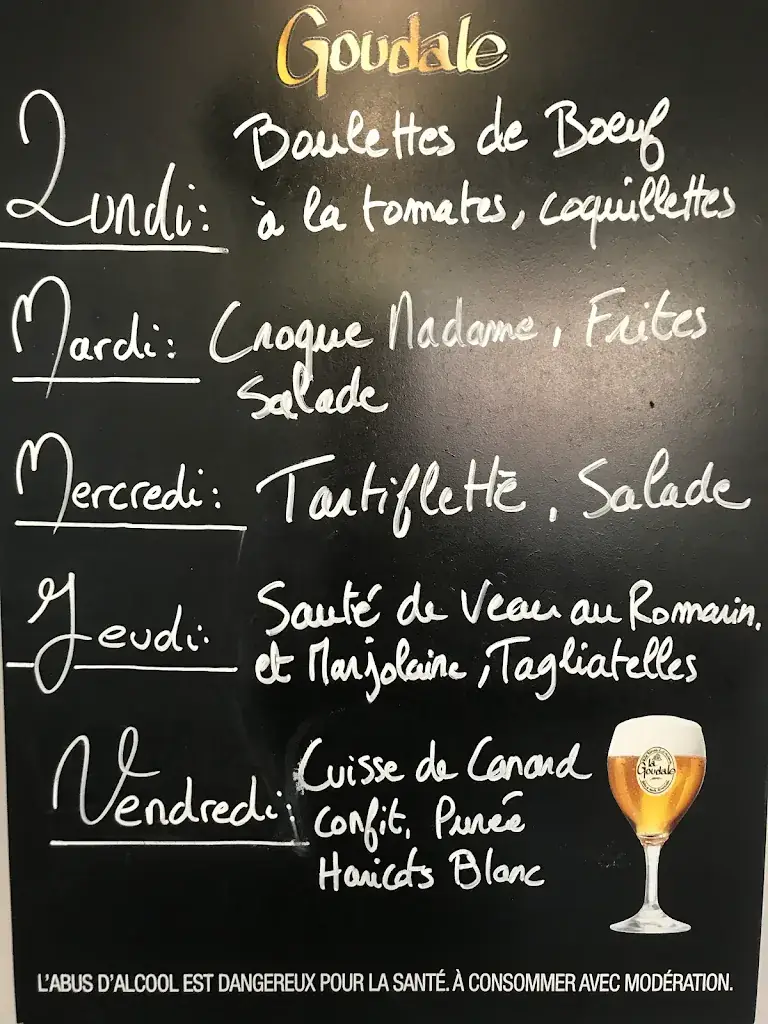 Goudale
Lundi: Boulettes de Boeuf
à la tomates, coquillettes
Mardi: Croque Madame, Frites
Salade
Mercredi: Tartiflette, Salade
Jeudi: Sauté de Veau au Romarin.
et Marjolaine, Tagliatelles
Vendredi: Cuisse de Canard
Confit, Purée
Haricots Blanc
la
Goudale
L'ABUS D'ALCOOL EST DANGEREUX POUR LA SANTÉ. À CONSOMMER AVEC MODÉRATION.